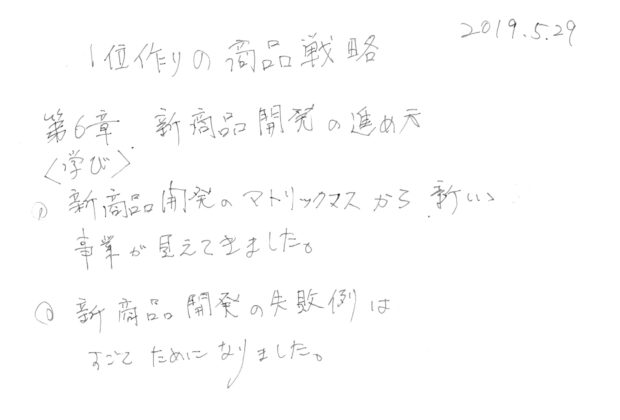 2019.5.29
1位作りの商品戦略
第6章 新商品開発の進め方
〈学び〉
① 新商品開発のマトリックスから 新しい
事業が見えてきました。
新商品開発の失敗例は
すごく ために なりました。